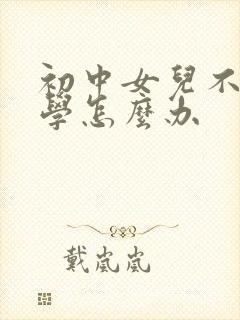 初中女兒不
學怎麼办
戴嵐嵐